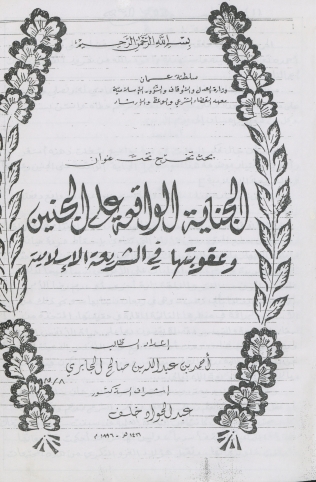 بسم الله الرحمن الرحيم
سلطنة عمان
وزارة العدل والأوقاف والشؤون الإسلامية
معهد القضاء الشرعي والوعظ والإرشاد
بحث تخرج تحت عنوان
الجناية الواقعة على الجنين
وعقوبتها في الشريعة الإسلامية
إعداد الطالب
أحمد بن عبدالله بن صالح الجابري
إشراف الدكتور
عبدالجواد خلف
١٤١٦ هـ - ١٩٩٦ م